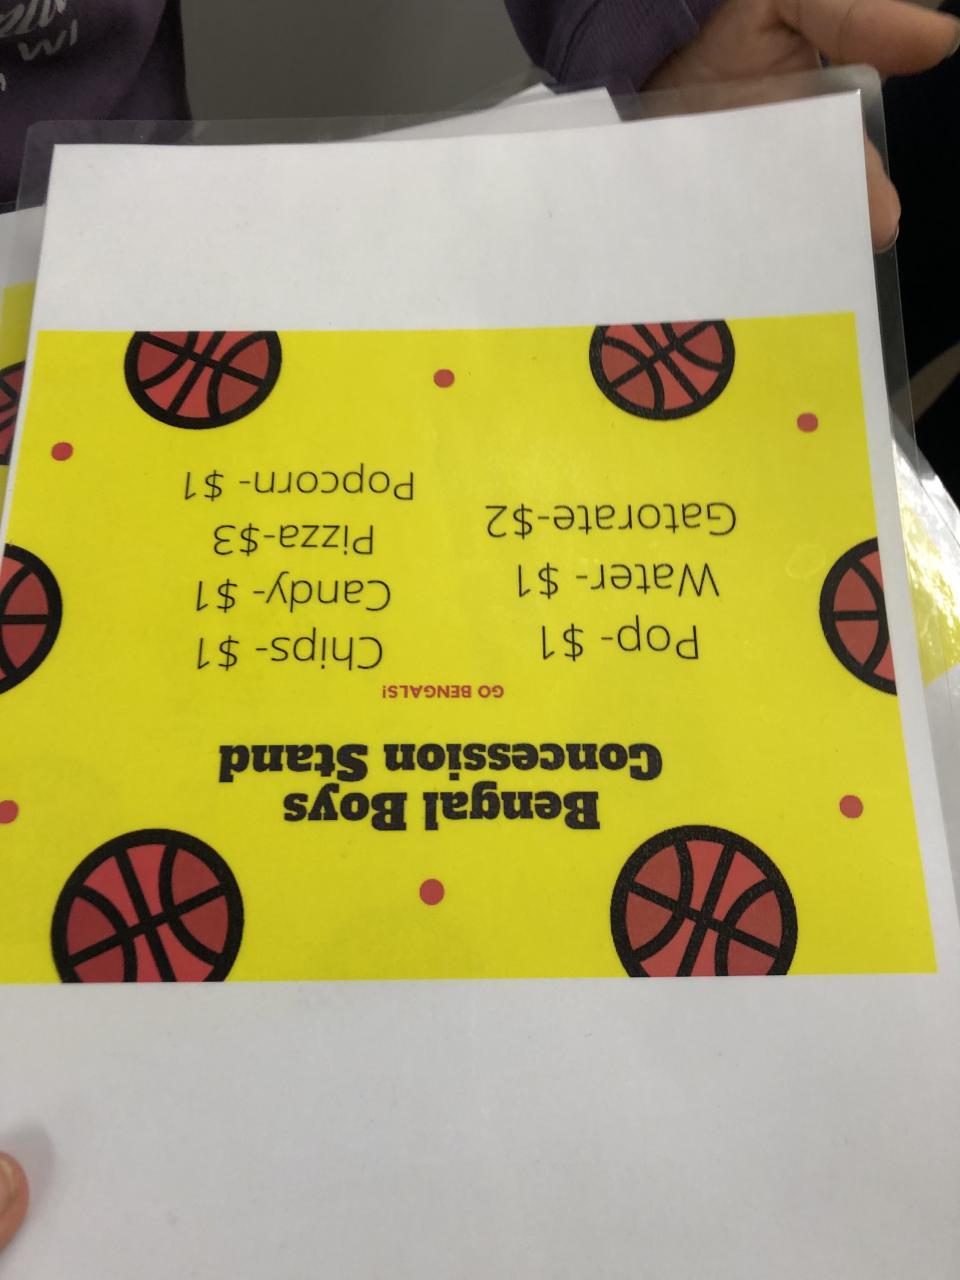 Bengal Boys
Concession Stand
GO BENGALS!
Pop- $1
Water- $1
Gatorate-$2
Chips- $1
Candy- $1
Pizza-$3
Popcorn- $1